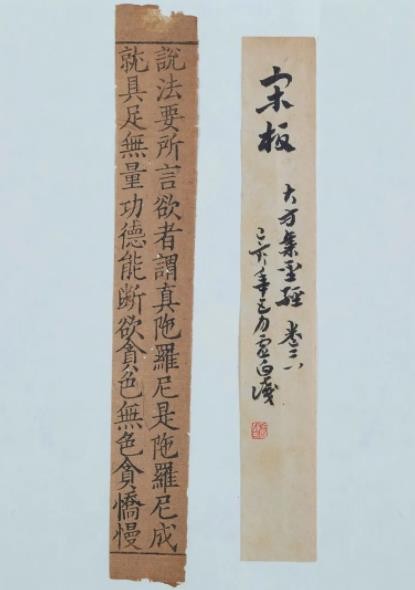 宋板
大方集經 卷
己亥年五月虛白識
說法要所言欲者謂真陁羅尼是陁羅尼成
就具足無量功德能斷欲貪色無色貪憍慢